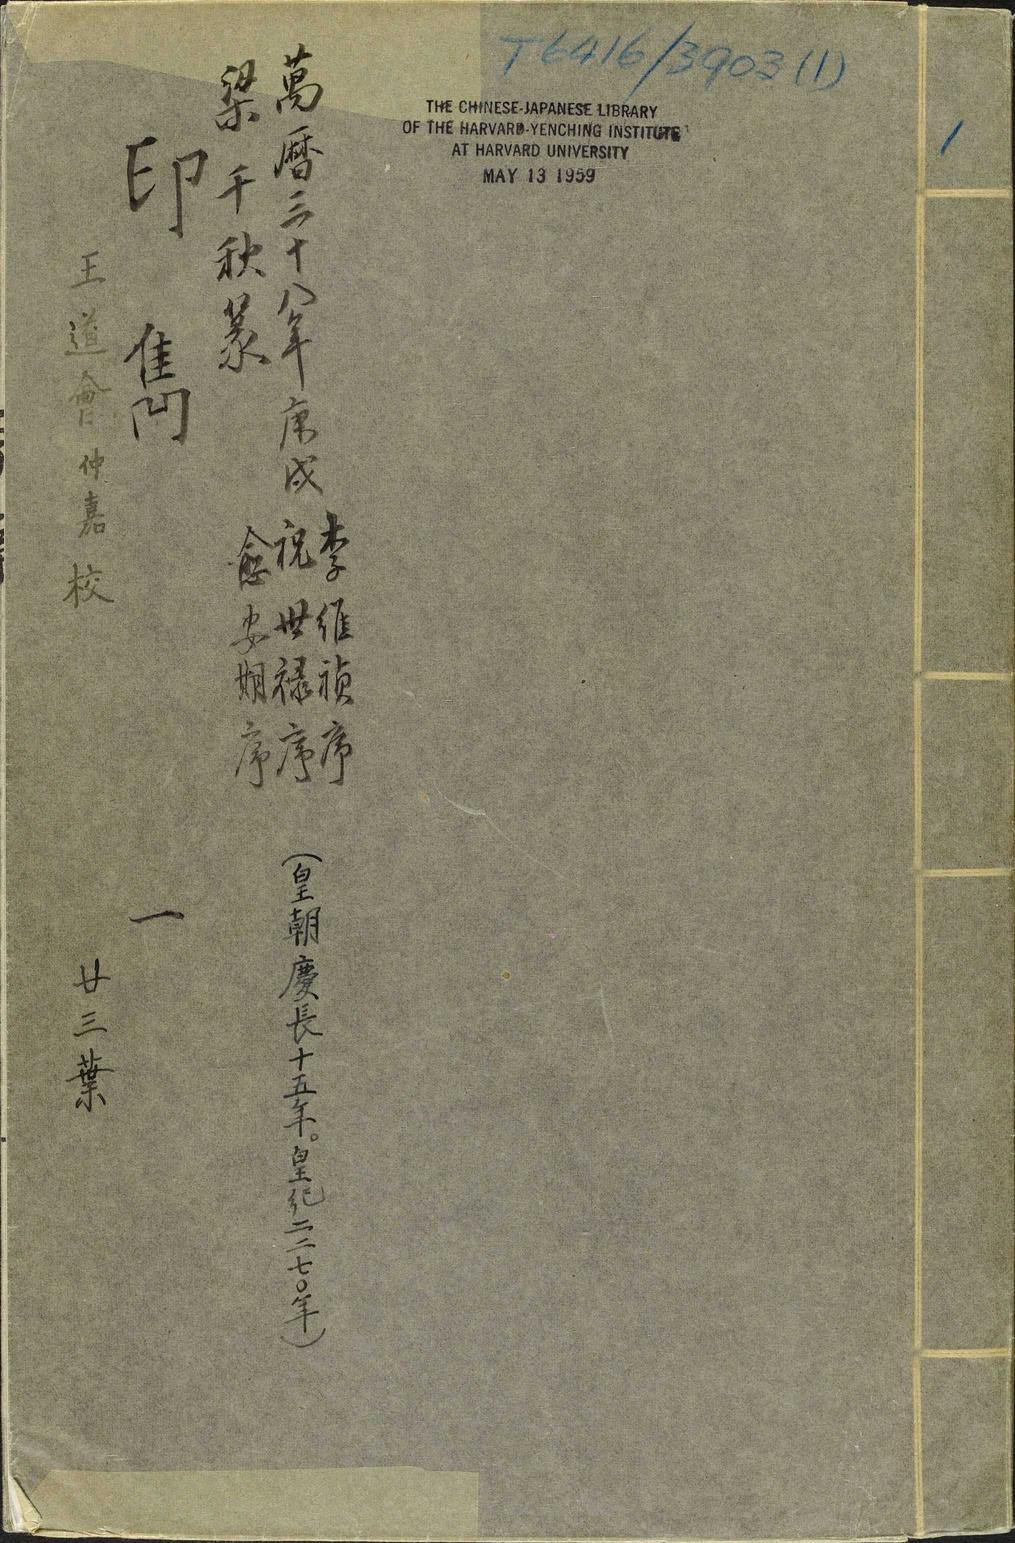 T6416/3903(1)
1
THE CHINESE-JAPANESE LIBRARY
OF THE HARVARD-YENCHING INSTITUTE
AT HARVARD UNIVERSITY
MAY 13 1959
萬曆三十八年庚戌
李維禎序
祝世禄序
俞安期序
(皇朝慶長十五年。皇紀二二七〇年)
梁千秋篆
印雋 一
王道會仲嘉校
廿三葉